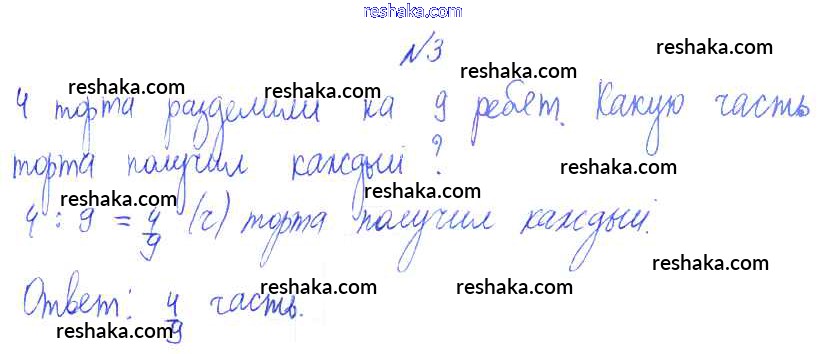 reshaka.com
№3
reshaka.com
reshaka.com reshaka.com reshaka.com
4 торта разделили на 9 ребят. Какую часть
reshaka.com reshaka.com
торта получил каждый?
reshaka.com reshaka.com reshaka.com
4 : 9 = 4/9 (ч) торта получил каждый.
reshaka.com reshaka.com reshaka.com
Ответ: 4/9 часть.
reshaka.com reshaka.com reshaka.com